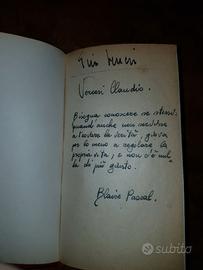 Vercesi Claudio.
Bisogna conoscere se stessi,
quand'anche non servisse
a trovare la verità, giova
per lo meno a regolare la
propria vita; e non c'è nul
la di più giusto.
Blaise Pascal.
subito